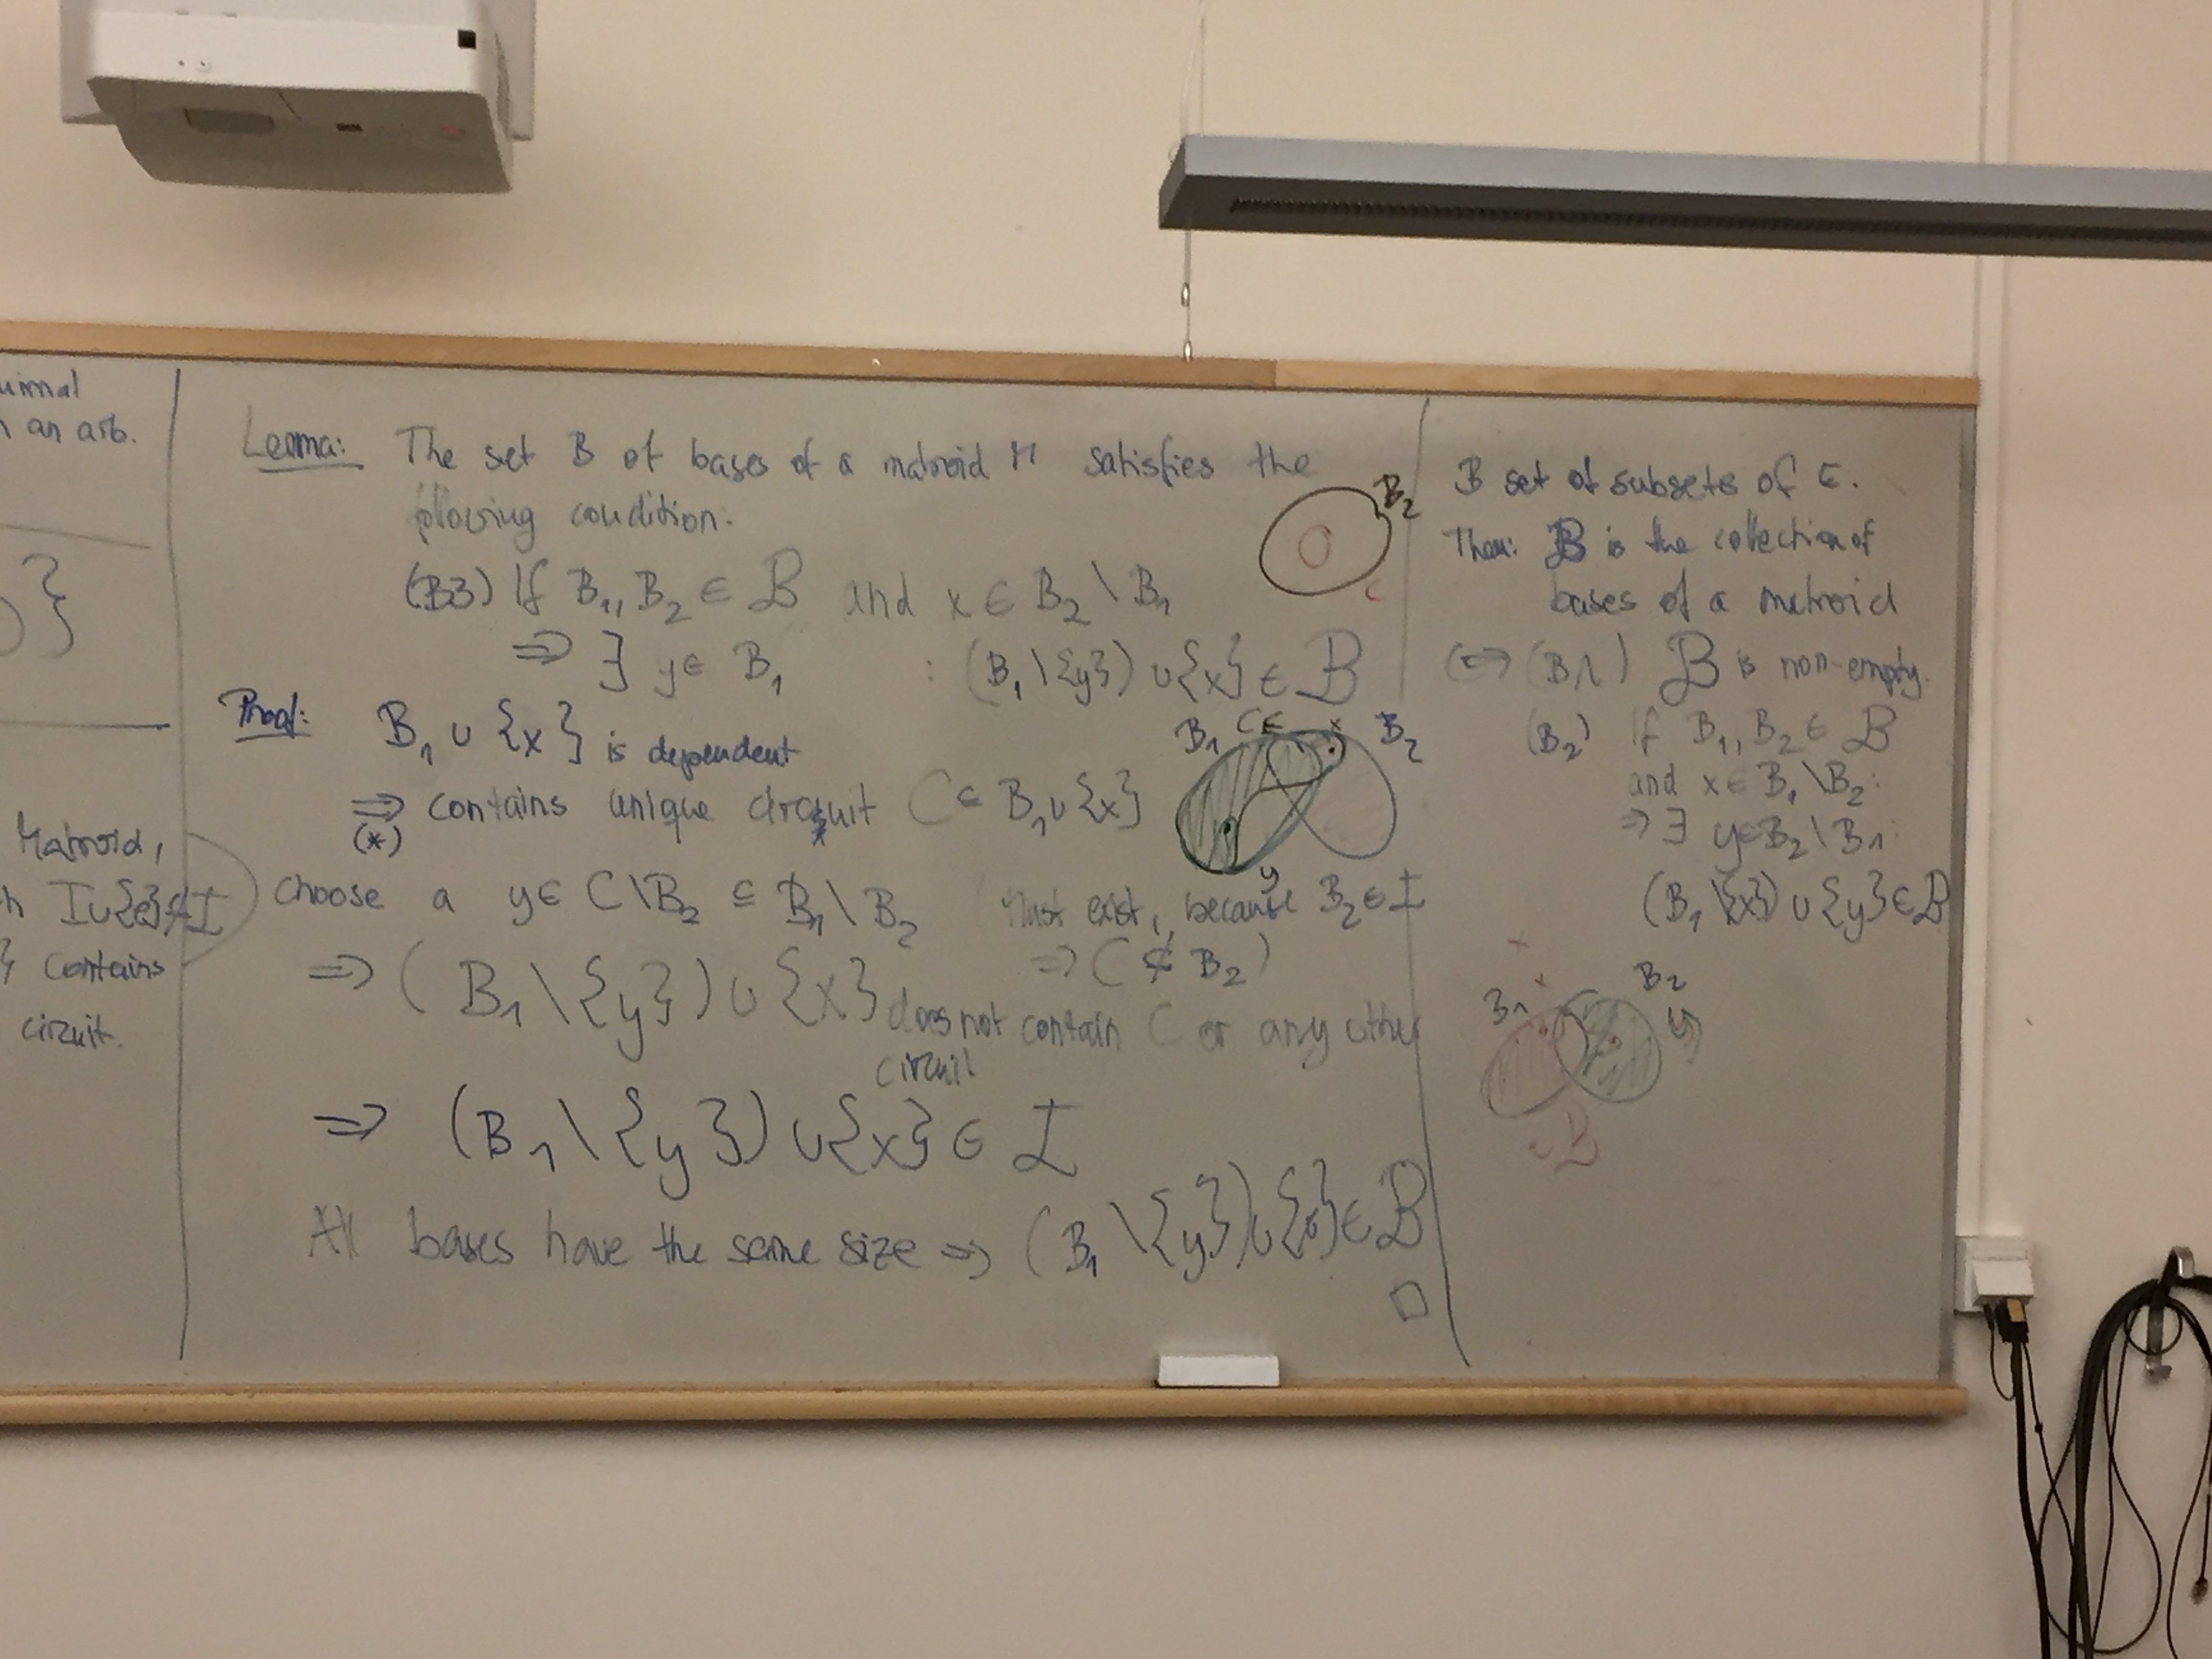 an arb.
}
Matroid,
I∪{e}∉I
} contains
circuit.
Lemma: The set B of bases of a matroid M satisfies the
following condition:
(B3) If B₁, B₂ ∈ B and x ∈ B₂ \ B₁
⇒ ∃ y ∈ B₁ : (B₁ \ {y}) ∪ {x} ∈ B
B₂
C
Proof: B₁ ∪ {x} is dependent
⇒ contains unique circuit C ⊆ B₁ ∪ {x}
(*)
B₁ C x B₂
y
Choose a y ∈ C \ B₂ ⊆ B₁ \ B₂ (Must exist, because B₂ ∈ I
⇒ C ⊄ B₂)
⇒ (B₁ \ {y}) ∪ {x} does not contain C or any other
circuit
⇒ (B₁ \ {y}) ∪ {x} ∈ I
All bases have the same size ⇒ (B₁ \ {y}) ∪ {x} ∈ B
□
B set of subsets of E.
Then: B is the collection of
bases of a matroid
⇔ (B1) B is non-empty.
(B2) If B₁, B₂ ∈ B
and x ∈ B₁ \ B₂:
⇒ ∃ y ∈ B₂ \ B₁:
(B₁ \ {x}) ∪ {y} ∈ B
x
B₁ x B₂
y
B